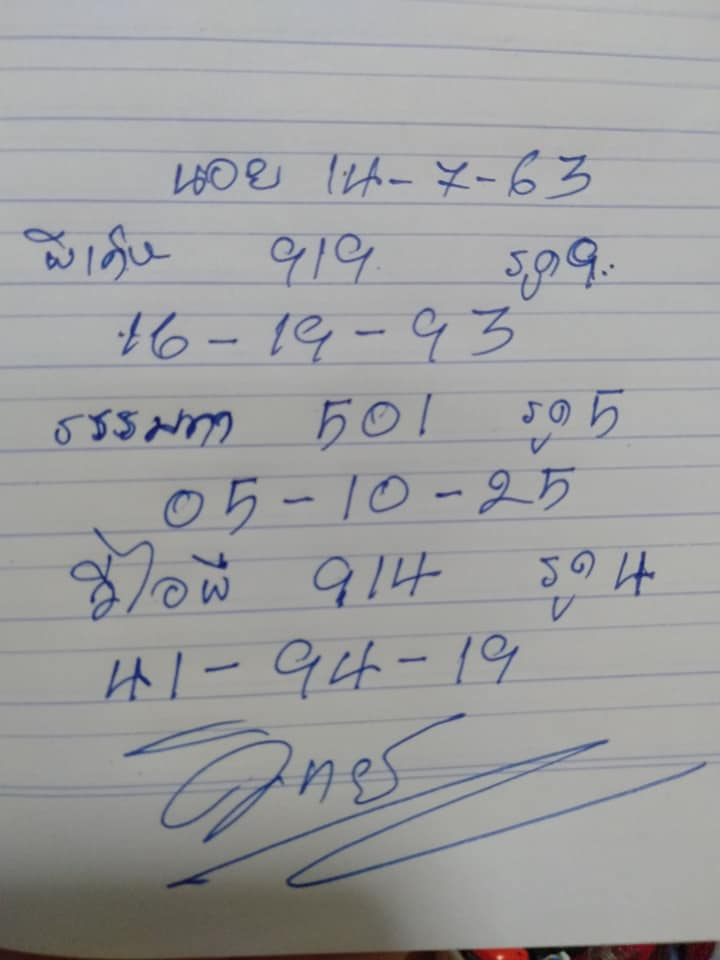 นอย 14-7-63
พิเศษ 919 รูด9.
16-19-93
ธรรมดา 501 รูด5
05-10-25
วีไอพี 914 รูด4
41-94-19